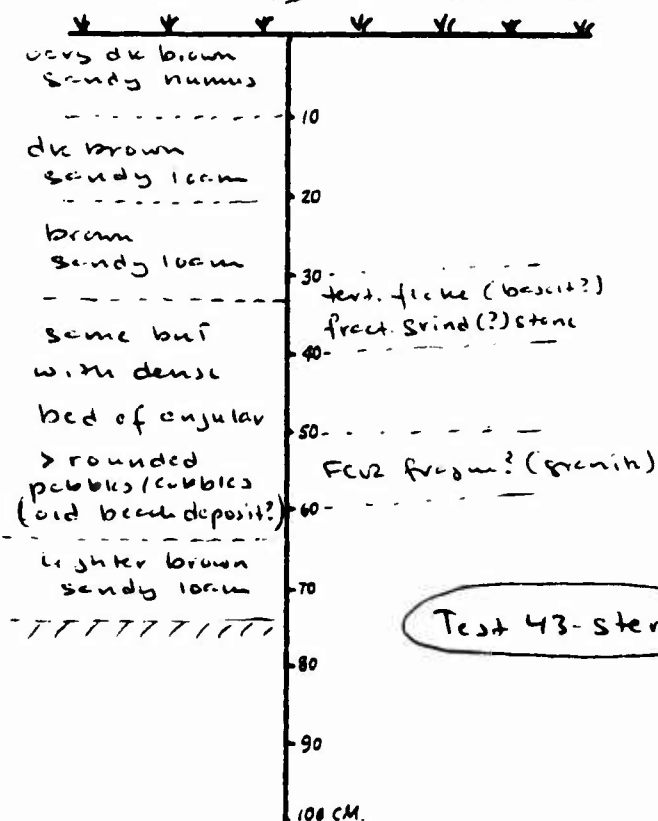 very dk brown
sandy humus
10
dk brown
sandy loam
20
brown
sandy loam
30
tert. flake (basalt?)
fract. grind(?) stone
same but
40
with dense
bed of angular
50
> rounded
FCR fragm? (granite)
pebbles/cobbles
(old beach deposit?)
60
lighter brown
sandy loam
70
Test 43-
80
90
100 CM.